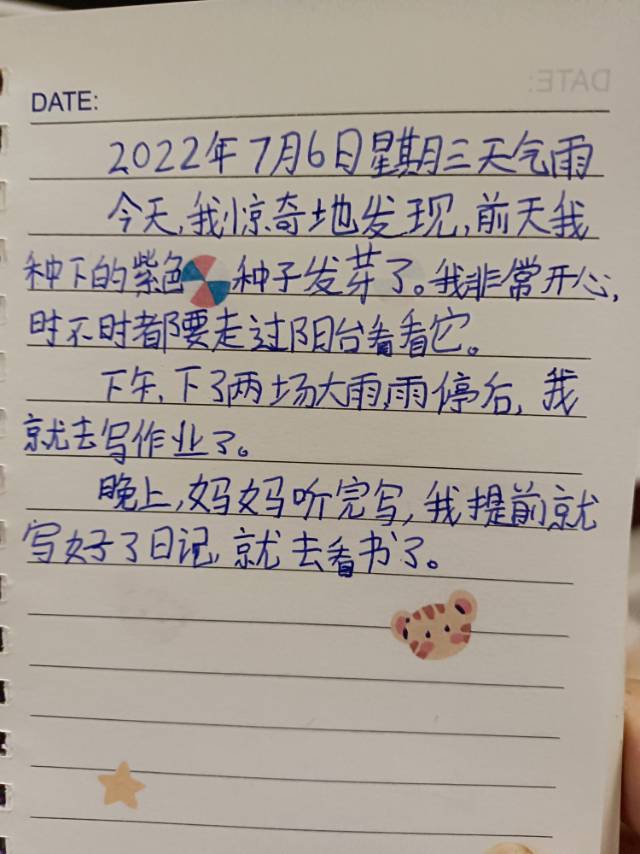 DATE:
2022年7月6日星期三天气雨
今天,我惊奇地发现,前天我
种下的紫色 种子发芽了。我非常开心,
时不时都要走过阳台看看它。
下午,下了两场大雨,雨停后,我
就去写作业了。
晚上,妈妈听完写,我提前就
写好了日记,就去看书了。